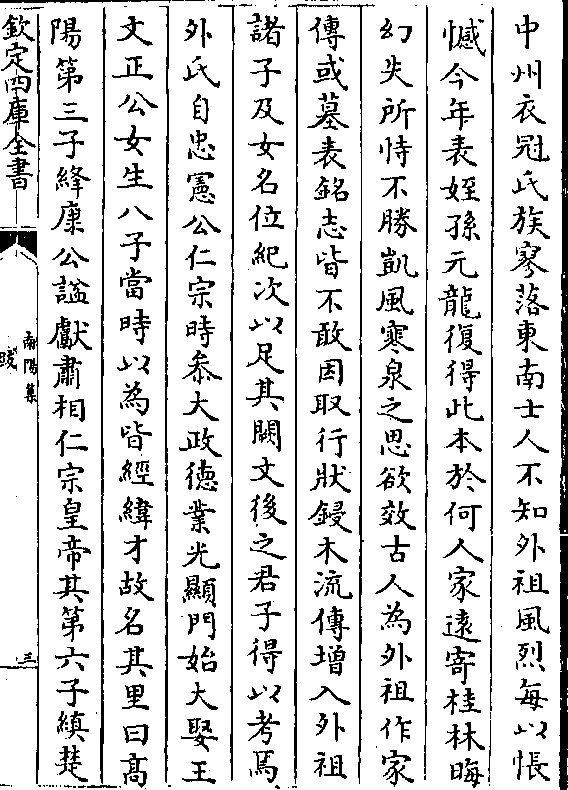 中州衣冠氏族寥落東南士人不知外祖風烈每以悵
憾今年表姪孫元龍復得此本於何人家逺寄桂林晦
幻失所恃不勝凱風寒泉之思欲效古人為外祖作家
傳或墓表銘志皆不敢因取行狀鋟木流傳增入外祖
諸子及女名位紀次以足其闕文後之君子得以考焉
外氏自忠憲公仁宗時叅大政徳業光顯門始大娶王
文正公女生八子當時以為皆經緯才故名其里曰髙
陽第三子絳康公諡獻肅相仁宗皇帝其第六子縝楚
欽定四庫全書
南陽集
跋
三